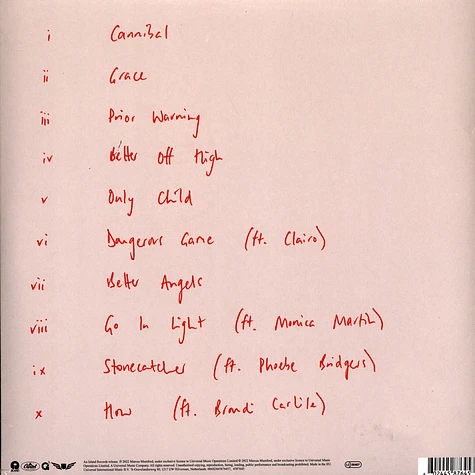 i Cannibal
ii Grace
iii Prior Warning
iv Better Off High
v Only Child
vi Dangerous Game (ft. Clairo)
vii Better Angels
viii Go In Light (ft. Monica Martin)
ix Stonecatcher (ft. Phoebe Bridgers)
x How (ft. Brandi Carlile)
An Island Records release. ℗ 2022 Marcus Mumford, under exclusive licence to Universal Music Operations Limited © 2022 Marcus Mumford, under exclusive licence to Universal Music
Operations Limited. A Universal Music Company. All rights reserved. Unauthorised copying, reproduction, hiring, lending, public performance and broadcasting prohibited. Made in the EU.